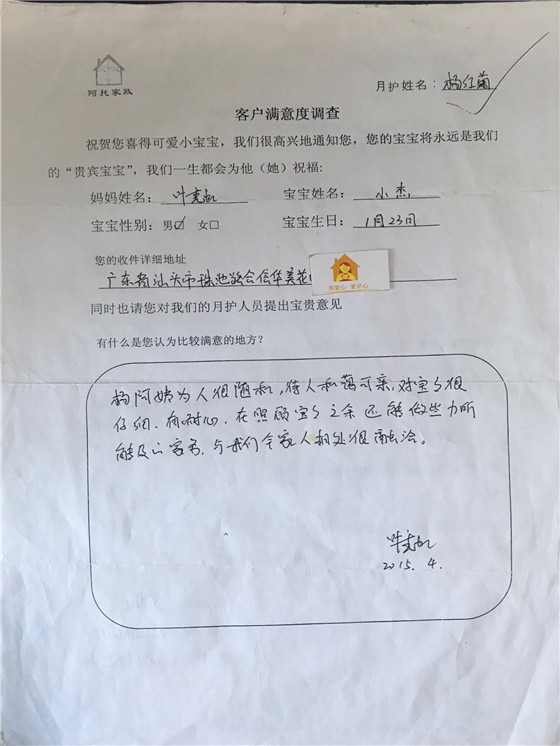 阿托家政
月护姓名：杨红菊
客户满意度调查
祝贺您喜得可爱小宝宝，我们很高兴地通知您，您的宝宝将永远是我们
的“贵宾宝宝”，我们一生都会为他（她）祝福：
妈妈姓名：叶 宝宝姓名：小杰
宝宝性别：男☑ 女□ 宝宝生日：1月23日
您的收件详细地址
广东省汕头市珠池路会信华美花
有爱心 更尽心
同时也请您对我们的月护人员提出宝贵意见
有什么是您认为比较满意的地方？
杨阿姨为人很随和，待人和蔼可亲，对宝宝很
仔细、有耐心，在照顾宝宝之余还能做些力所
能及的家务，与我们全家人相处很融洽。
叶
2015.4.